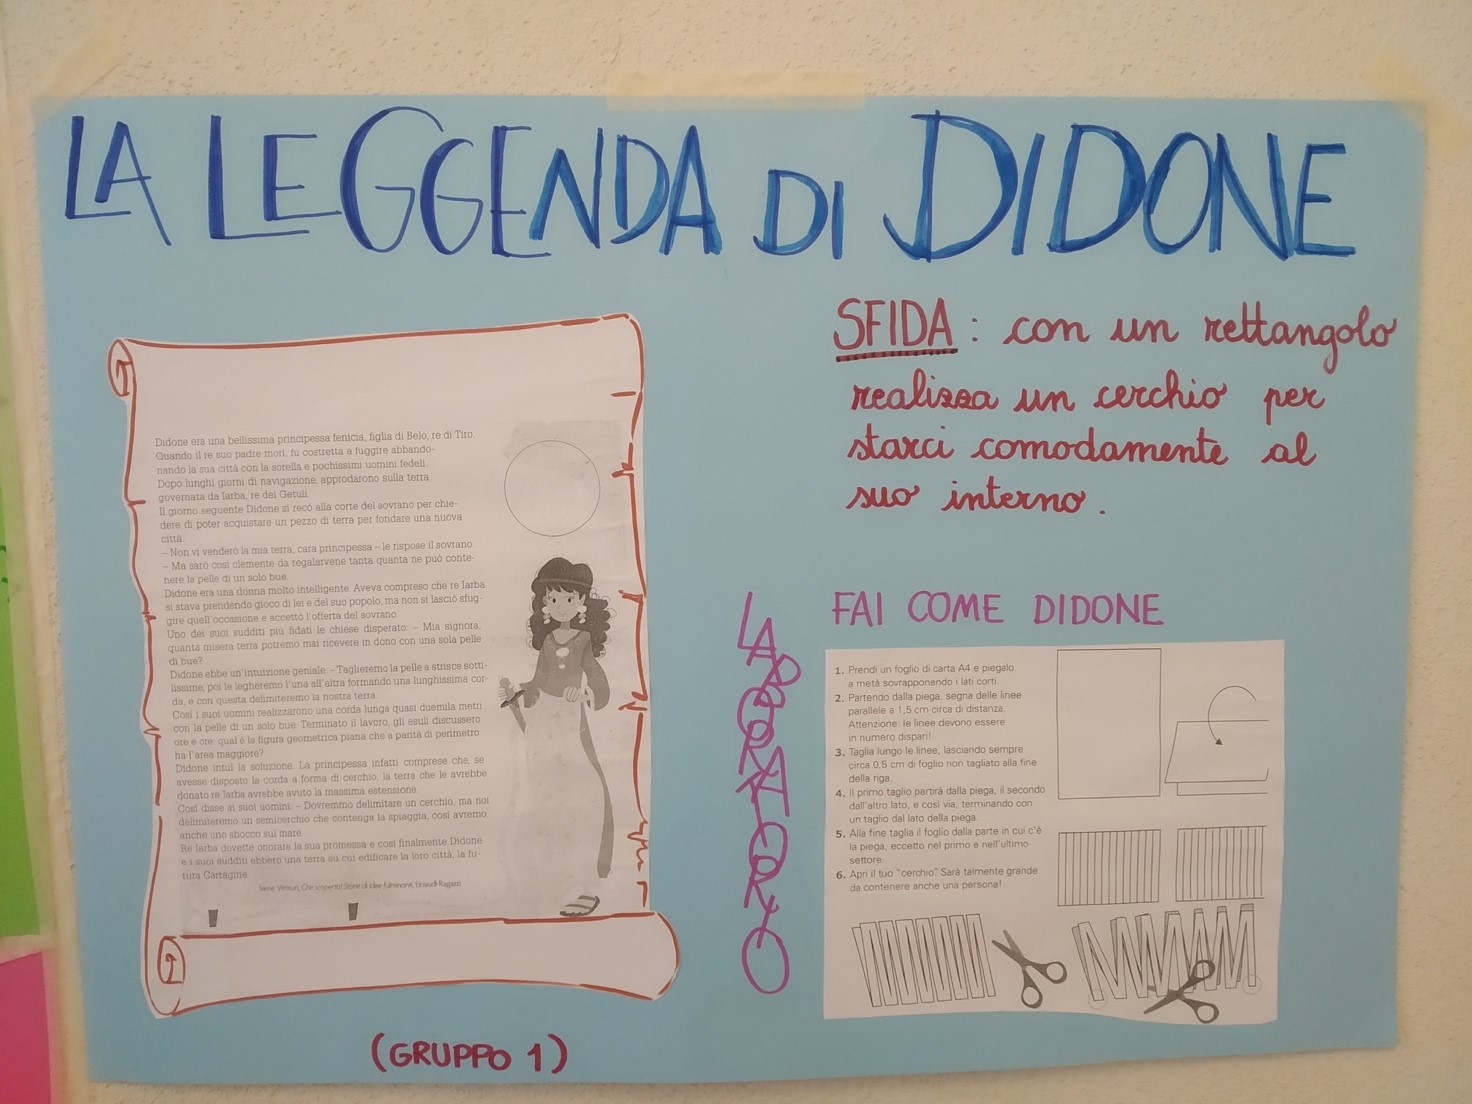 LA LEGGENDA DI DIDONE
Didone era una bellissima principessa fenicia, figlia di Belo, re di Tiro.
Quando il re suo padre morì, fu costretta a fuggire abbando-
nando la sua città con la sorella e pochissimi uomini fedeli.
Dopo lunghi giorni di navigazione, approdarono sulla terra
governata da Iarba, re dei Getuli.
Il giorno seguente Didone si recò alla corte del sovrano per chie-
dere di poter acquistare un pezzo di terra per fondare una nuova
città.
– Non vi venderò la mia terra, cara principessa – le rispose il sovrano
– Ma sarò così clemente da regalarvene tanta quanta ne può conte-
nere la pelle di un solo bue.
Didone era una donna molto intelligente. Aveva compreso che re Iarba
si stava prendendo gioco di lei e del suo popolo, ma non si lasciò sfug-
gire quell'occasione e accettò l'offerta del sovrano.
Uno dei suoi sudditi più fidati le chiese disperato: – Mia signora,
quanta misera terra potremo mai ricevere in dono con una sola pelle
di bue?
Didone ebbe un'intuizione geniale: – Taglieremo la pelle a strisce sotti-
lissime, poi le legheremo l'una all'altra formando una lunghissima cor-
da, e con questa delimiteremo la nostra terra.
Così i suoi uomini realizzarono una corda lunga quasi duemila metri
con la pelle di un solo bue. Terminato il lavoro, gli esuli discussero
ore e ore: qual è la figura geometrica piana che a parità di perimetro
ha l'area maggiore?
Didone intuì la soluzione. La principessa infatti comprese che, se
avesse disposto la corda a forma di cerchio, la terra che le avrebbe
donato re Iarba avrebbe avuto la massima estensione.
Così disse ai suoi uomini: – Dovremmo delimitare un cerchio, ma noi
delimiteremo un semicerchio che contenga la spiaggia, così avremo
anche uno sbocco sul mare.
Re Iarba dovette onorare la sua promessa e così finalmente Didone
e i suoi sudditi ebbero una terra su cui edificare la loro città, la fu-
tura Cartagine.
Irene Venturi, Che scoperta! Storie di idee fulminanti, Einaudi Ragazzi
(GRUPPO 1)
SFIDA: con un rettangolo
realizza un cerchio per
starci comodamente al
suo interno.
LABORATORIO
FAI COME DIDONE
1. Prendi un foglio di carta A4 e piegalo
a metà sovrapponendo i lati corti.
2. Partendo dalla piega, segna delle linee
parallele a 1,5 cm circa di distanza.
Attenzione: le linee devono essere
in numero dispari!
3. Taglia lungo le linee, lasciando sempre
circa 0,5 cm di foglio non tagliato alla fine
della riga.
4. Il primo taglio partirà dalla piega, il secondo
dall'altro lato, e così via, terminando con
un taglio dal lato della piega.
5. Alla fine taglia il foglio dalla parte in cui c'è
la piega, eccetto nel primo e nell'ultimo
settore.
6. Apri il tuo "cerchio" Sarà talmente grande
da contenere anche una persona!